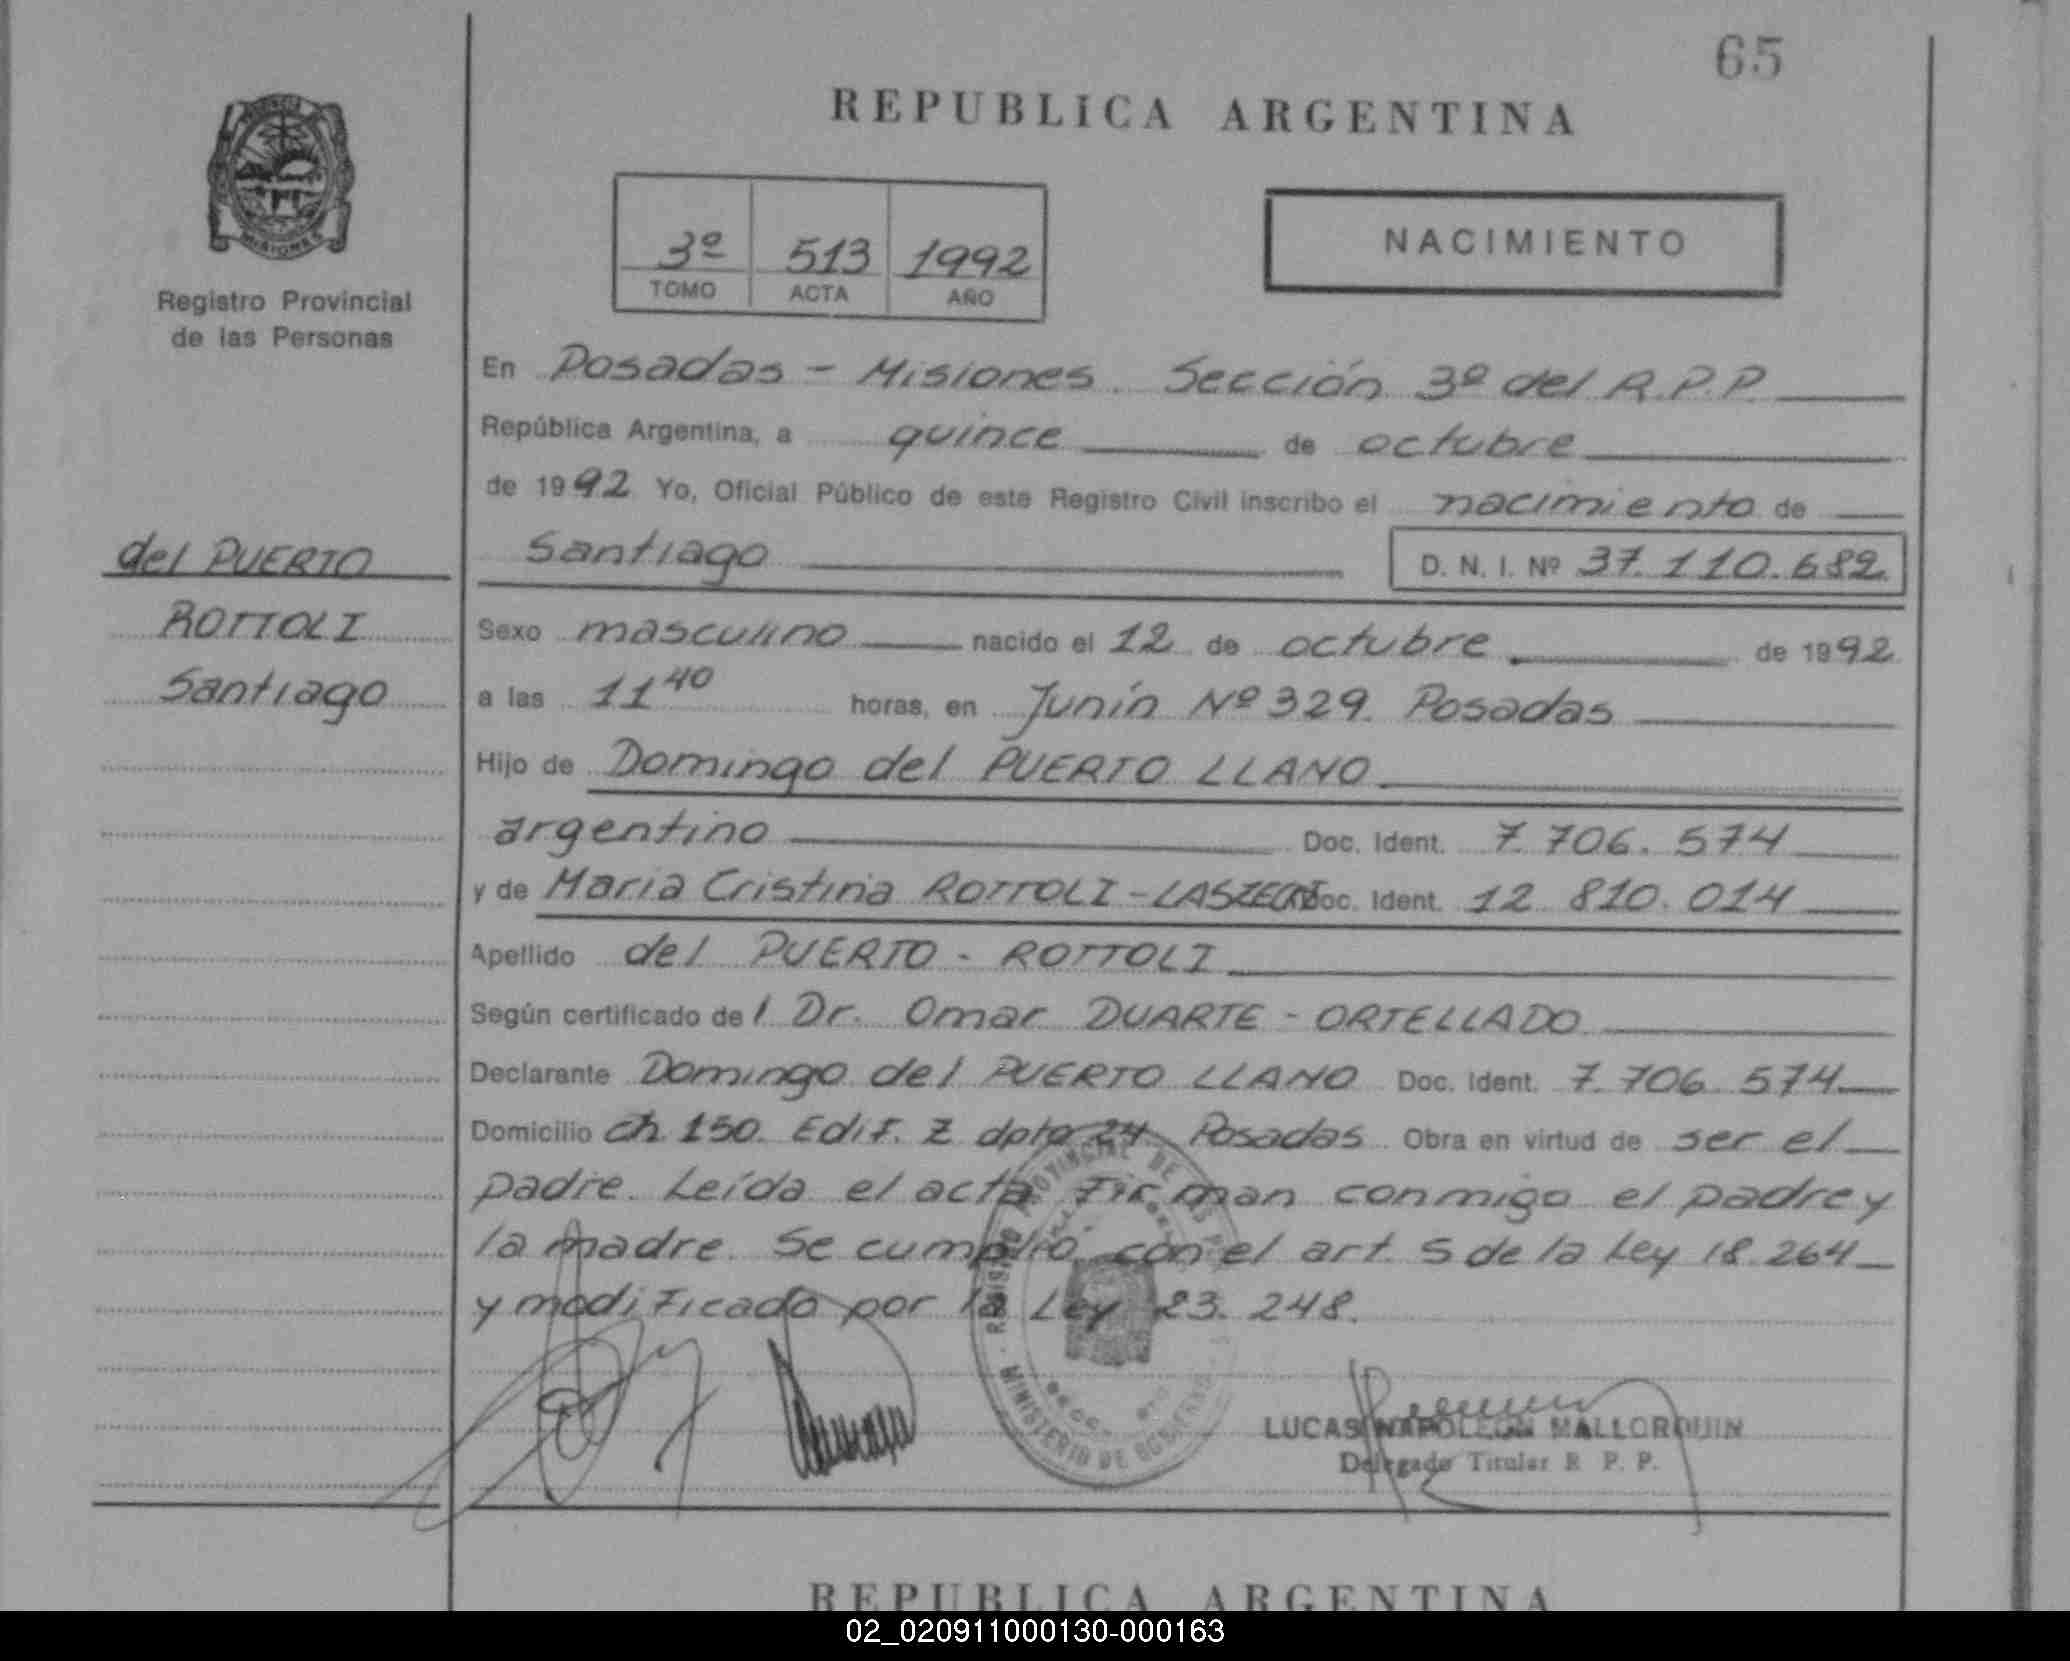 65
REPUBLICA ARGENTINA
MISIONES
Registro Provincial
de las Personas
3º 513 1992
TOMO ACTA AÑO
NACIMIENTO
En Posadas - Misiones. Sección 3º del R.P.P.
República Argentina, a quince de octubre
de 1992 Yo, Oficial Público de este Registro Civil inscribo el nacimiento de
Santiago D. N. I. Nº 37.110.682
del PUERTO
ROTTOLI
Santiago
Sexo masculino nacido el 12 de octubre de 1992
a las 11 40 horas, en Junín Nº 329. Posadas
Hijo de Domingo del PUERTO LLANO
argentino Doc. Ident. 7.706.574
y de Maria Cristina ROTTOLI - Doc. Ident. 12.810.014
Apellido del PUERTO - ROTTOLI
Según certificado del Dr. Omar DUARTE - ORTELLADO
Declarante Domingo del PUERTO LLANO Doc. Ident. 7.706.574
Domicilio ch. 150. Edif. Z dpto 24 Posadas Obra en virtud de ser el
padre. Leída el acta firman conmigo el padre y
la madre. Se cumplió con el art. 5 de la Ley 18.264
y modificado por la Ley 23.248.
MINISTERIO DE GOBIERNO
LUCAS NAPOLEON MALLORQUIN
Delegado Titular R. P. P.
REPUBLICA ARGENTINA
02_020911000130-000163